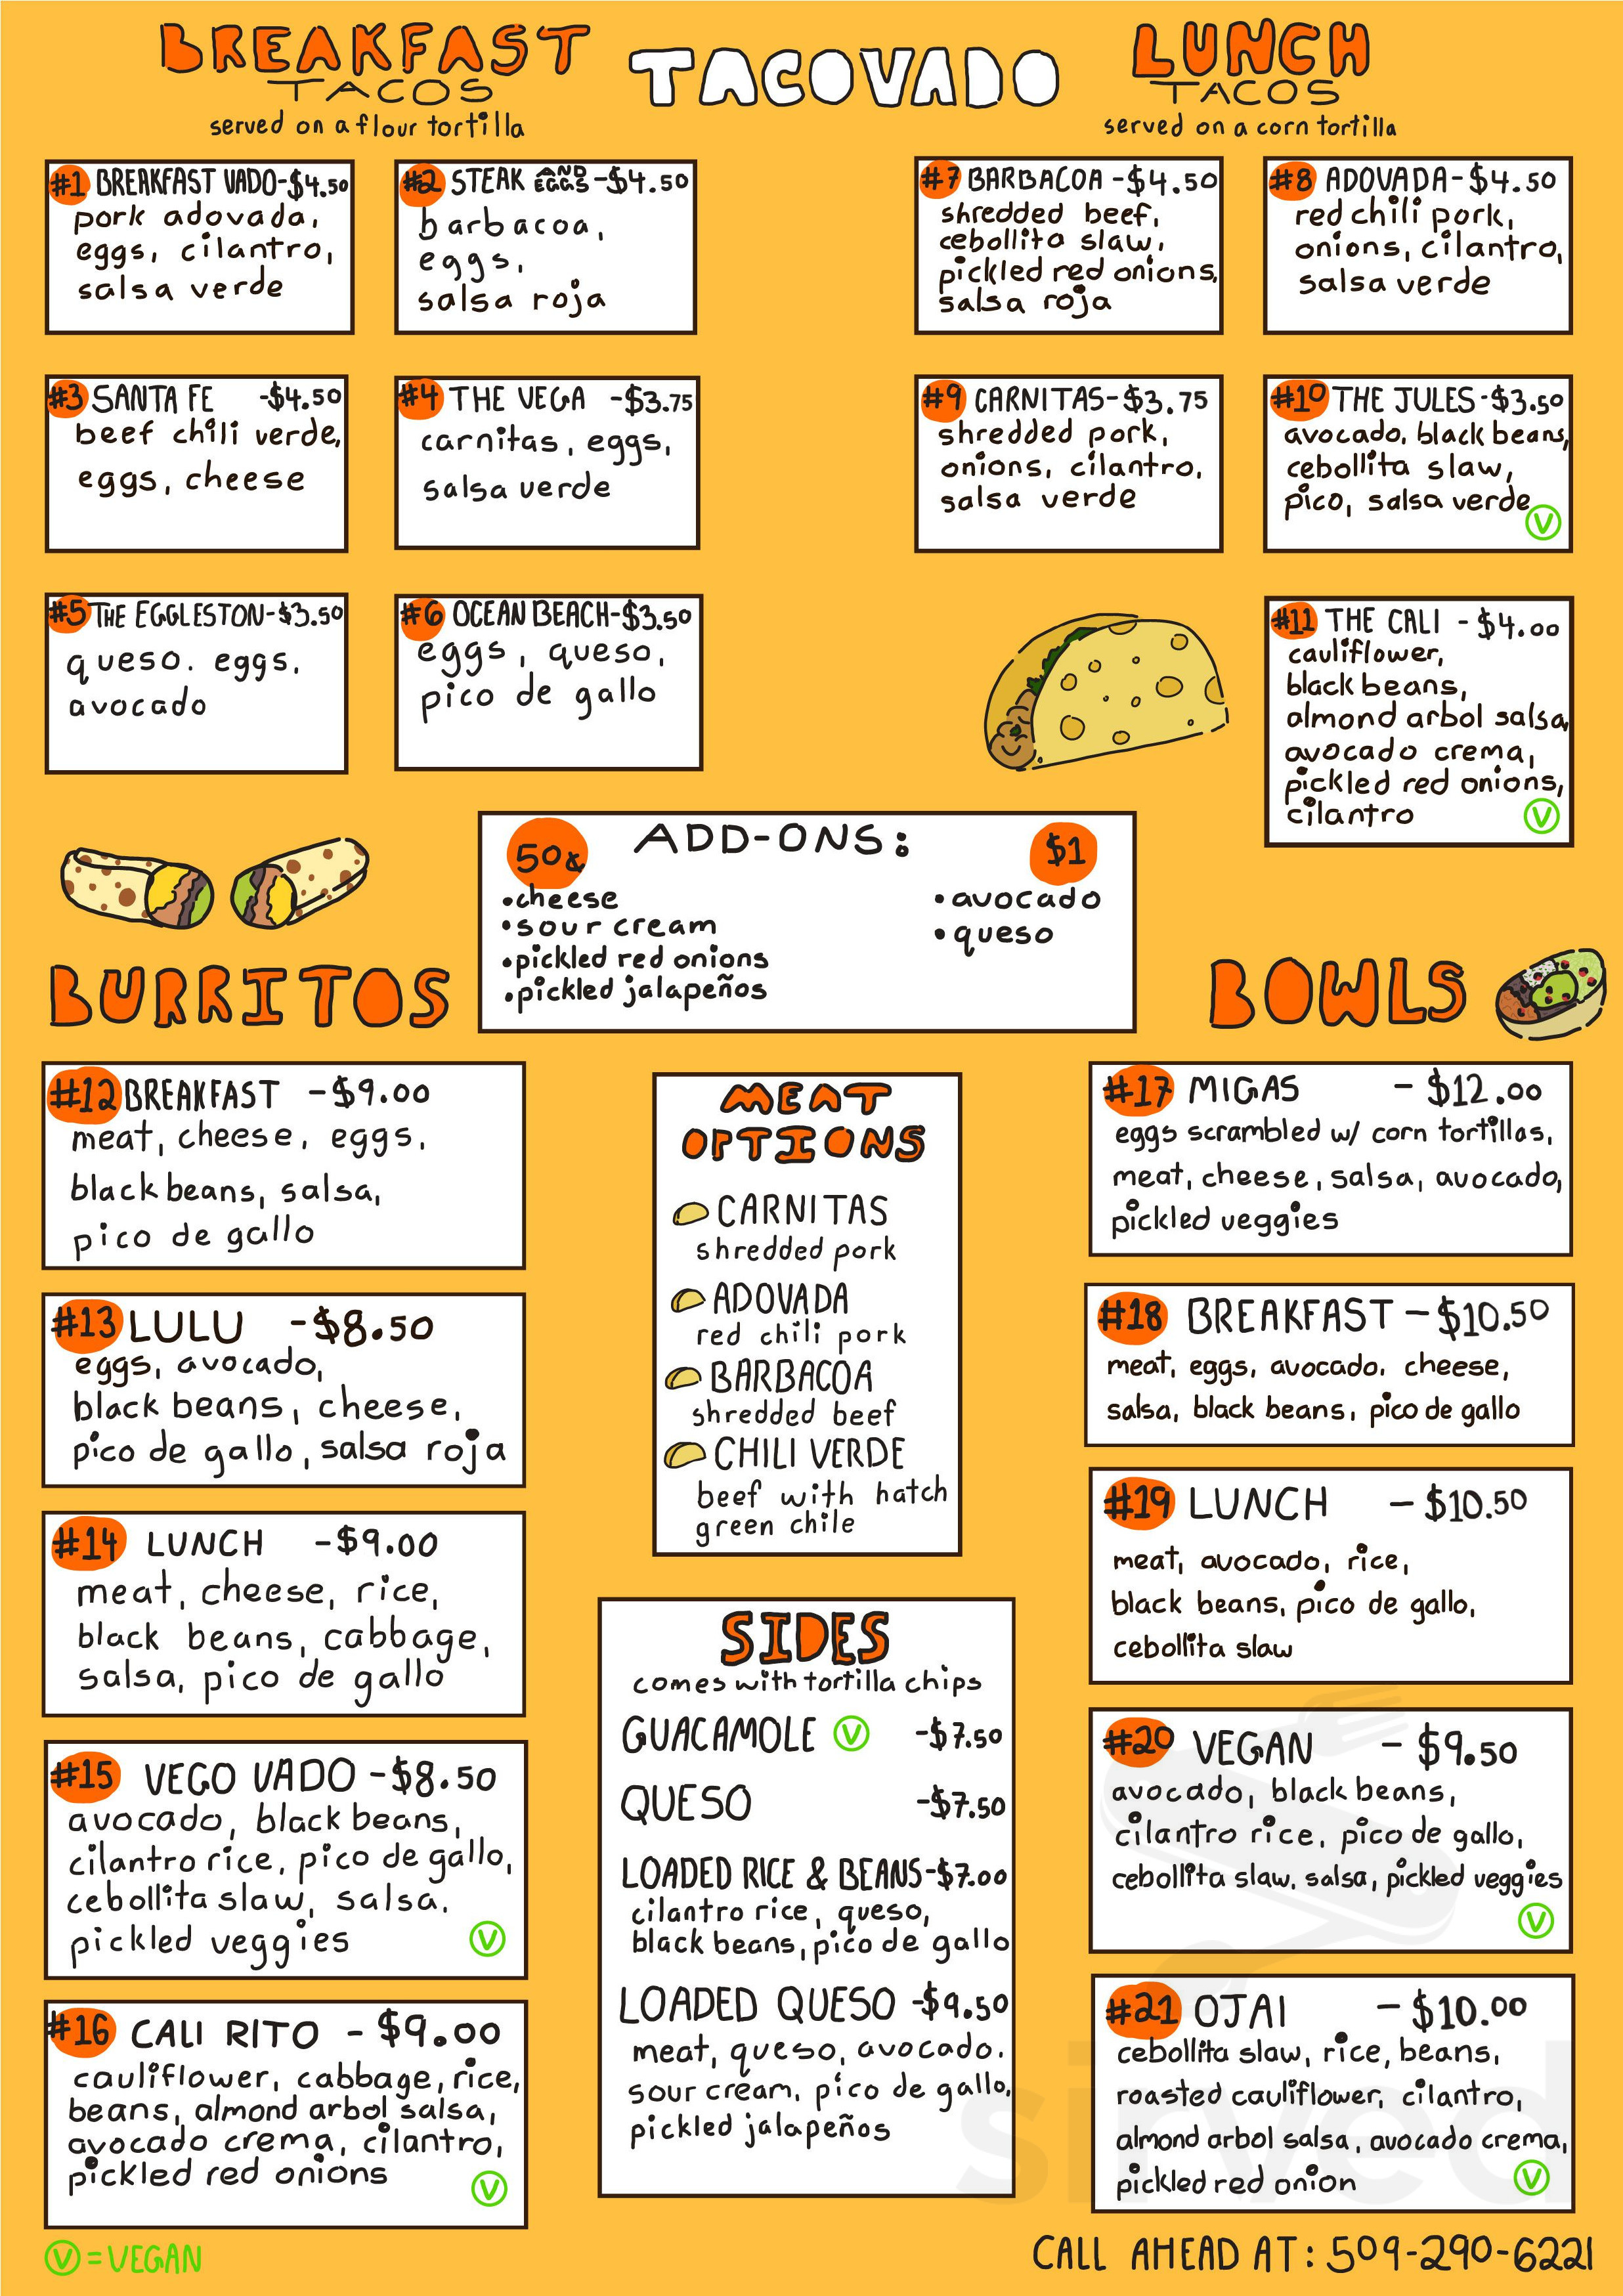 BREAKFAST
TACOS
served on a flour tortilla
TACOVADO
LUNCH
TACOS
served on a corn tortilla
#1 BREAKFAST VADO-$4.50
pork adovada,
eggs, cilantro,
salsa verde
#2 STEAK AND EGGS-$4.50
barbacoa,
eggs,
salsa roja
#3 SANTA FE -$4.50
beef chili verde,
eggs, cheese
#4 THE VEGA -$3.75
carnitas, eggs,
salsa verde
#5 THE EGGLESTON-$3.50
queso. eggs,
avocado
#6 OCEAN BEACH-$3.50
eggs, queso,
pico de gallo
#7 BARBACOA -$4.50
shredded beef,
cebollita slaw,
pickled red onions,
salsa roja
#8 ADOVADA-$4.50
red chili pork,
onions, cilantro,
salsa verde
#9 CARNITAS-$3.75
shredded pork,
onions, cilantro,
salsa verde
#10 THE JULES-$3.50
avocado, black beans,
cebollita slaw,
pico, salsa verde
V
#11 THE CALI -$4.00
cauliflower,
black beans,
almond arbol salsa,
avocado crema,
pickled red onions,
cilantro V
ADD-ONS:
50¢
•cheese
•sour cream
•pickled red onions
•pickled jalapeños
$1
•avocado
•queso
BURRITOS
#12 BREAKFAST -$9.00
meat, cheese, eggs,
black beans, salsa,
pico de gallo
#13 LULU -$8.50
eggs, avocado,
black beans, cheese,
pico de gallo, salsa roja
#14 LUNCH -$9.00
meat, cheese, rice,
black beans, cabbage,
salsa, pico de gallo
#15 VEGO VADO -$8.50
avocado, black beans,
cilantro rice, pico de gallo,
cebollita slaw, salsa,
pickled veggies V
#16 CALI RITO -$9.00
cauliflower, cabbage, rice,
beans, almond arbol salsa,
avocado crema, cilantro,
pickled red onions V
MEAT
OPTIONS
CARNITAS
shredded pork
ADOVADA
red chili pork
BARBACOA
shredded beef
CHILI VERDE
beef with hatch
green chile
SIDES
comes with tortilla chips
GUACAMOLE V -$7.50
QUESO -$7.50
LOADED RICE & BEANS-$7.00
cilantro rice, queso,
black beans, pico de gallo
LOADED QUESO -$9.50
meat, queso, avocado.
sour cream, pico de gallo,
pickled jalapeños
BOWLS
#17 MIGAS -$12.00
eggs scrambled w/ corn tortillas,
meat, cheese, salsa, avocado,
pickled veggies
#18 BREAKFAST -$10.50
meat, eggs, avocado. cheese,
salsa, black beans, pico de gallo
#19 LUNCH -$10.50
meat, avocado, rice,
black beans, pico de gallo,
cebollita slaw
#20 VEGAN -$9.50
avocado, black beans,
cilantro rice, pico de gallo,
cebollita slaw, salsa, pickled veggies
V
#21 OJAI -$10.00
cebollita slaw, rice, beans,
roasted cauliflower, cilantro,
almond arbol salsa, avocado crema,
pickled red onion V
sirved
V = VEGAN
CALL AHEAD AT: 509-290-6221